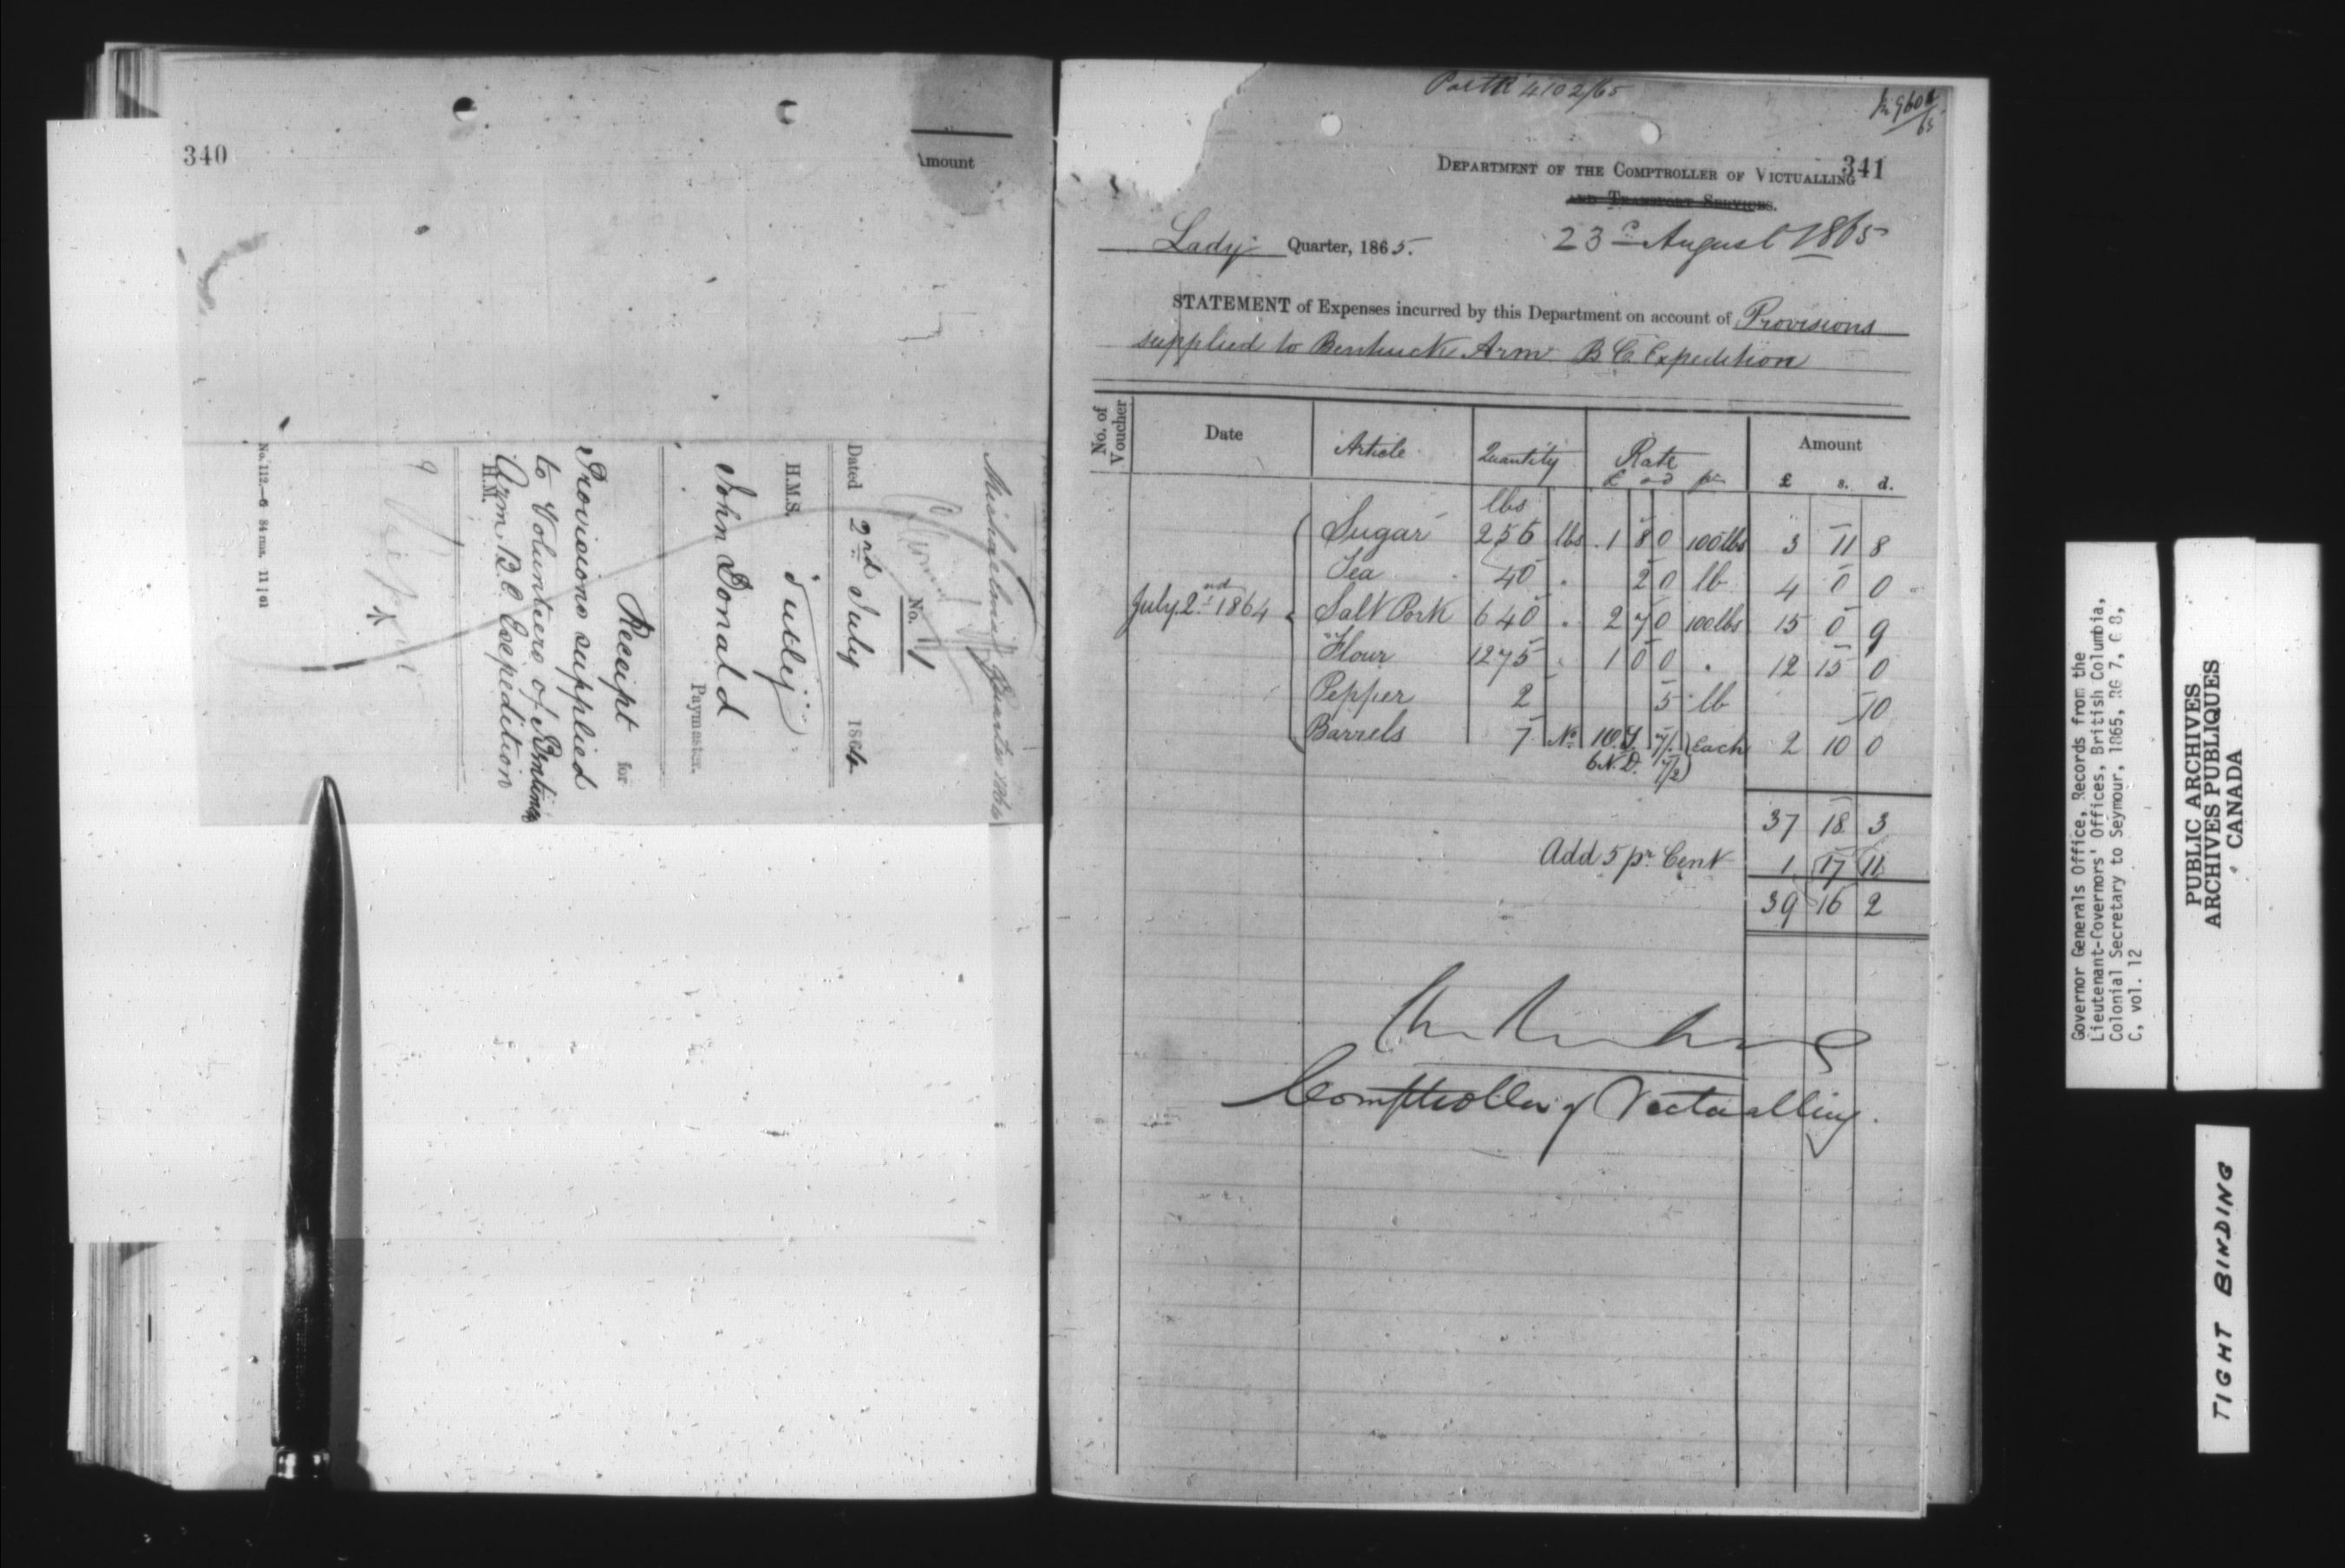 340
Amount
No. 1
Dated 2nd July 1864
H.M.S. Tulliji
John Donald
Paymaster.
Receipt for
Provisions supplied
to Volunteers of Bentinck
Arm B.C. Expedition
H.M.
No. 112.—6
Part R 4102/65
341
DEPARTMENT OF THE COMPTROLLER OF VICTUALLING
AND TRANSPORT SERVICES.
Lady Quarter, 1865.
23rd August 1865
STATEMENT of Expenses incurred by this Department on account of Provisions
supplied to Bentinck Arm B C Expedition
No. of Voucher Date Article Quantity Rate Amount
£ s d pr £ s. d.
lbs
Sugar 256 lbs 1 8 0 100 lbs 3 11 8
Tea 40 " 2 0 lb 4 0 0
July 2nd 1864 Salt Pork 640 " 2 7 0 100 lbs 15 0 9
Flour 1275 " 1 0 0 " 12 15 0
Pepper 2 5 lb 10
Barrels 7 No Each 2 10 0
37 18 3
Add 5 pr Cent 1 17 11
39 16 2
Comptroller of Victualling.
Governor Generals Office, Records from the
Lieutenant-Governors' Offices, British Columbia,
Colonial Secretary to Seymour, 1865, RG 7, G 8,
C, vol. 12
PUBLIC ARCHIVES
ARCHIVES PUBLIQUES
CANADA
TIGHT BINDING